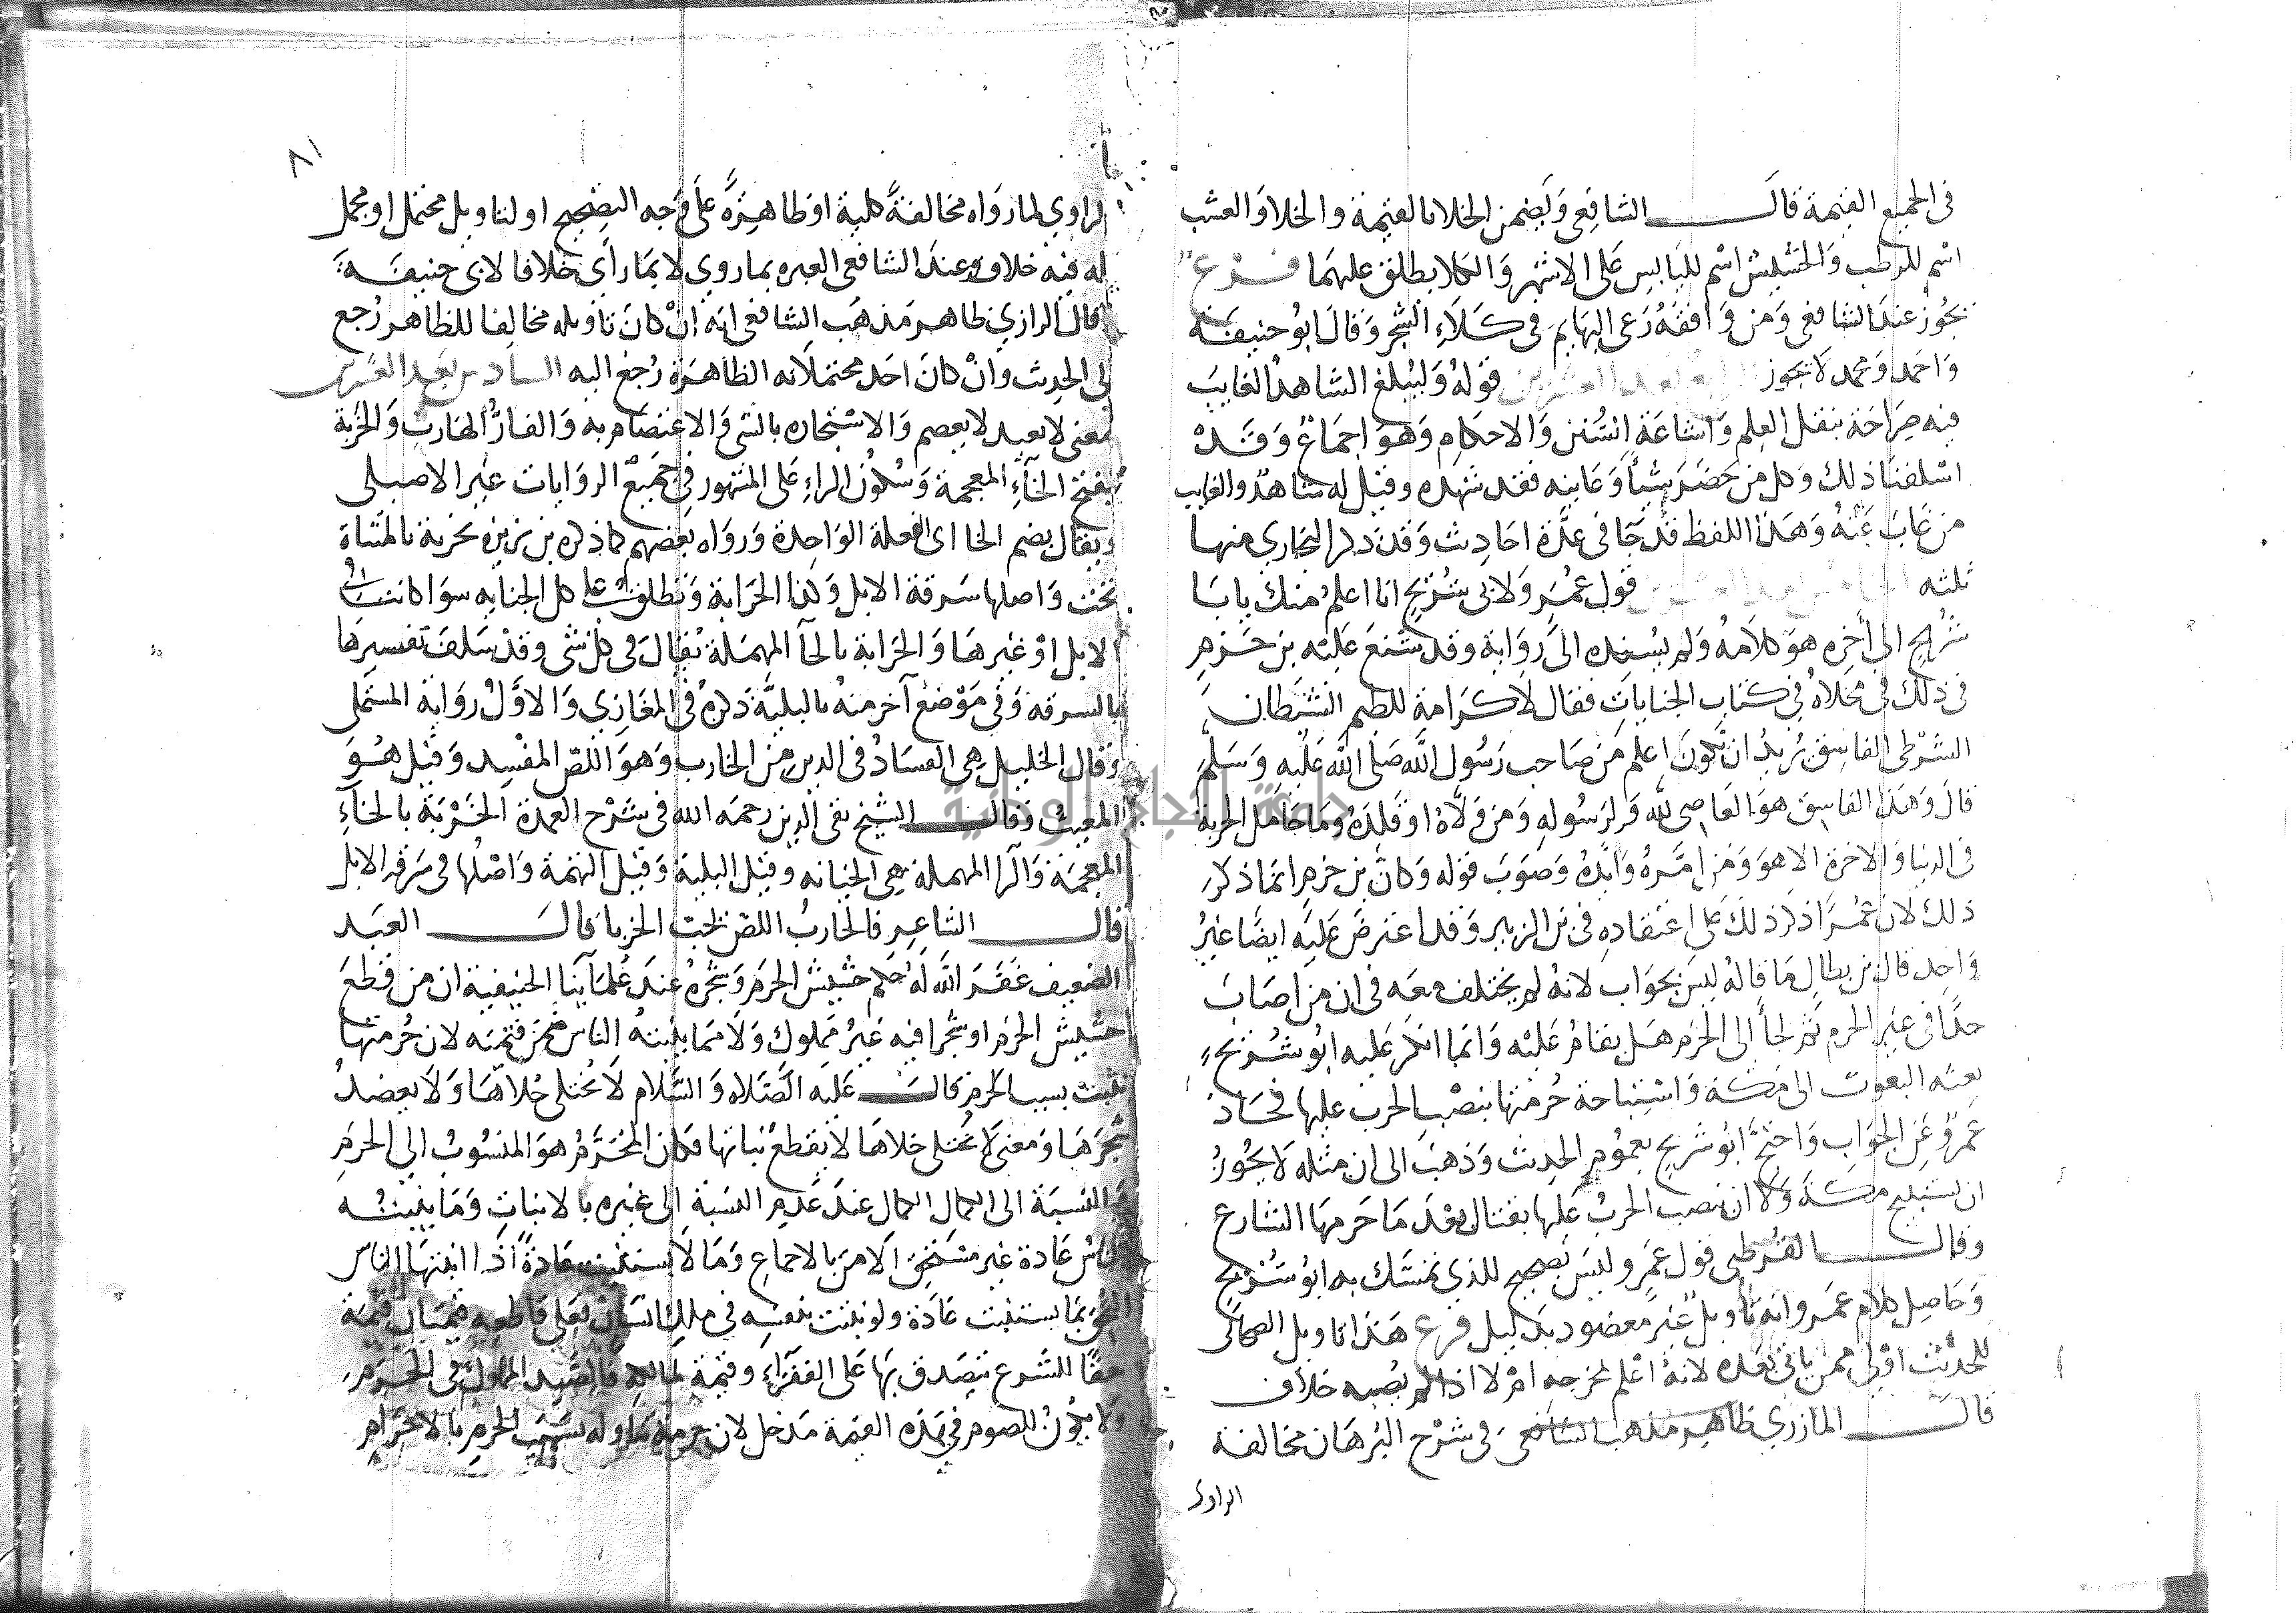 في الجميع القيمة قال الشافعي ويضمن الخلا بالقيمة والخلا والعشب
اسم للرطب والحشيش اسم لليابس على الاشهر والكلا يطلق عليهما فرع
يجوز عند الشافعي ومن وافقه رعي البهايم في كلاء الشجر وقال ابو حنيفة
واحمد ومحمد لا يجوز بعد العشرين قوله وليبلغ الشاهد الغايب
فيه صراحة بنقل العلم واشاعة السنن والاحكام وهو اجماع وقد
اسلفنا ذلك وكل من حضر شيأ وعاينه فقد شهده وقيل له شاهد والغايب
من غاب عنه وهذا اللفظ قد جا في عدة احاديث وقد ذكر البخاري منها
ثلثه بعد العشرين قول عمر ولابي شريح انا اعلم منك يابا
شريح الى اخره هو كلامه ولم يسنده الى رواية وقد شنع عليه بن حزم
في ذلك في محلاه في كتاب الجنايات فقال لا كرامة للطيم الشيطان
الشرطي الفاسق يريد ان يكون اعلم من صاحب رسول الله صلى الله عليه وسلم
قال وهذا الفاسق هو العاصي لله ولرسوله ومن ولاه او قلده وما حامل الخربة
في الدنيا والاخرة الا هو ومن امره وايده وصوب قوله وكان بن حزم انما ذكر
ذلك لان عمرا ذكر ذلك على اعتقاده في بن الزبير وقد اعترض عليه ايضا غير
واحد قال بن بطال ما قاله ليس بجواب لانه لم يختلف معه في ان من اصاب
حدا في غير الحرم ثم لجأ الى الحرم هل يقام عليه وانما انكر عليه ابو شريح
بعثه البعوث الى مكة واستباحة حرمتها بنصب الحرب عليها فحاد
عمرو عن الجواب واحتج ابو شريح بعموم الحديث وذهب الى ان مثله لا يجوز
ان يستبيح مكة ولا ان ينصب الحرب عليها بقتال بعد ما حرمها الشارع
وقال القرطبي قول عمرو ليس بصحيح للذي تمسك به ابو شريح
وحاصل كلام عمرو انه تأويل غير معضود بدليل فرع هذا تاويل الصحابي
للحديث اولى ممن ياتي بعده لانه اعلم بمخرجه ام لا اذا لم يصبه خلاف
قال المازري ظاهر مذهب الشافعي في شرح البرهان مخالفة
الراوي
٨١
الراوي لما رواه مخالفة كلية او ظاهرة على وجه التصحيح او لتاويل محتمل او مجمل
له فيه خلاف وعند الشافعي العبره بما روي لا بما رأي خلافا لابي حنيفة
قال الرازي ظاهر مذهب الشافعي انه ان كان تاويله مخالفا للظاهر رجع
الى الحديث وان كان احد محتملاته الظاهرة رجع اليه السادس بعد العشرين
معنى لا يعيد لا يعصم والاستجاره بالشي والاعتصام به والفار الهارب والخربة
بفتح الخاء المعجمة وسكون الراء على المشهور في جميع الروايات غير الاصيلي
ويقال بضم الخا اي الفعلة الواحدة ورواه بعضهم كما ذكره بن بزيزه بخزية بالمثناة
تحت واصلها سرقة الابل وكذا الخرابة وتطلق على كل الجنايه سوا كانت في
الابل او غيرها والحرابة بالحا المهملة تقال في كل شى وقد سلف تفسيرها
بالسرقة وفي موضع آخر منه بالبلية ذكره في المغازي والاول رواية المستملي
وقال الخليل هي الفساد في الدين من الخارب وهو اللص المفسد وقيل هو
المعيب وقال الشيخ تقي الدين رحمه الله في شرح العمدة الخربة بالخاء
المعجمة والرا المهملة هي الخيانه وقيل البلية وقيل التهمة واصلها في سرقة الابل
قال الشاعر فالخارب اللص يحب الخربا قال العبد
الضعيف غفر الله له حكم حشيش الحرم وشجره عند علمآينا الحنيفية ان من قطع
حشيش الحرم او شجرا فيه غير مملوك ولا مما ينبته الناس ضمن قيمته لان حرمتها
تثبت بسبب الحرم قال عليه الصلاه والسلام لا يختلى خلاها ولا يعضد
شجرها ومعنى لا يختلى خلاها لا يقطع نباتها فكان المحرم هو المنسوب الى الحرم
والنسبة الى الكمال الكمال عند عدم النسبة الى غيره بالانبات وما ينبته
الناس عادة غير مستحق الامن بالاجماع وما لا يستنبت عادة اذا انبتها الناس
التحق بما يستنبت عادة ولو ينبت بنفسه في ملك انسان فعلى قاطعه قيمتان قيمة
حقا للشرع يتصدق بها على الفقراء وقيمة لمالكه كالصيد المملوك في الحرم
ولا يكون للصوم في هذه القيمة مدخل لان حرمة تناوله بسبب الحرم بالاحترام